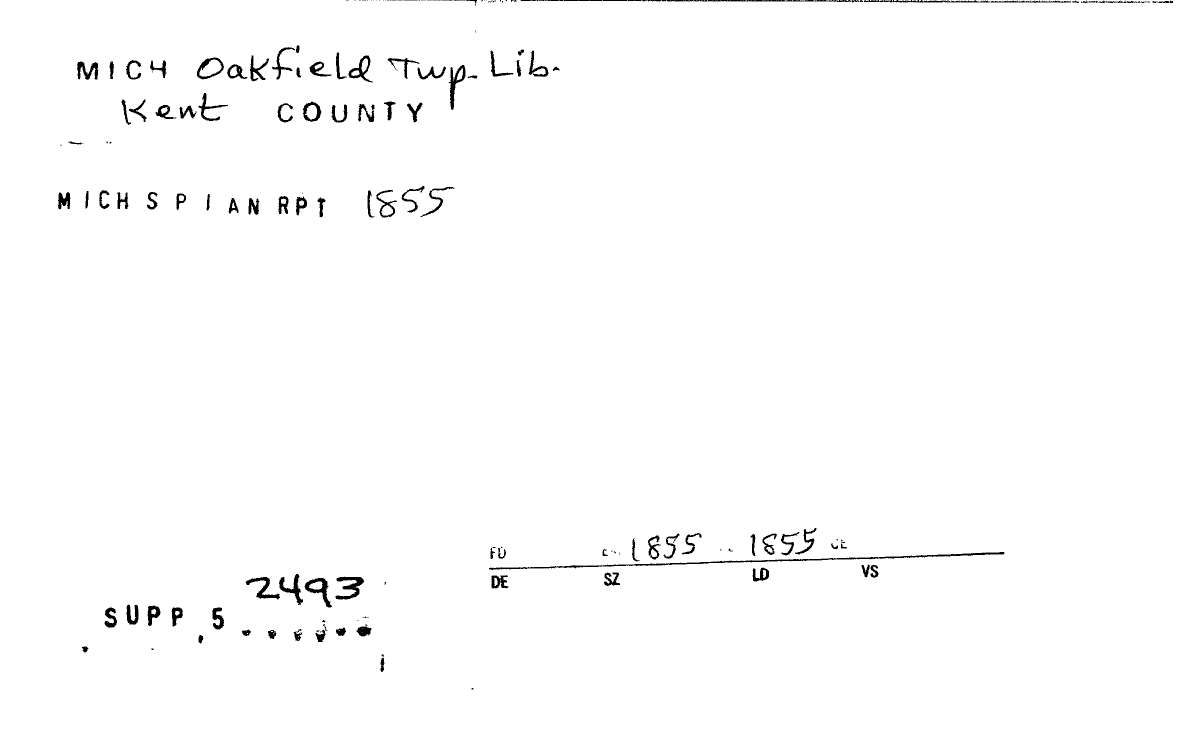 MICH Oakfield Twp. Lib.
Kent COUNTY
MICH S P I AN RPT 1855
FD 1855 1855
DE SZ LD VS
2493
SUPP. 5